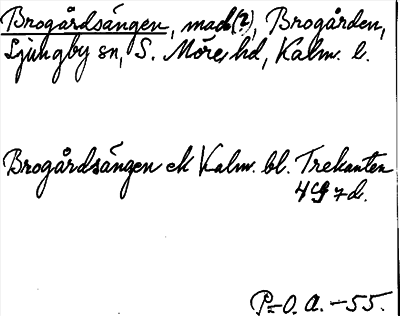 Brogårdsängen, mad(?), Brogården,
Ljungby sn, S. Möre hd, Kalm. l.
Brogårdsängen ek Kalm. bl. Trekanten
4G 7d.
P-O. A. -55.